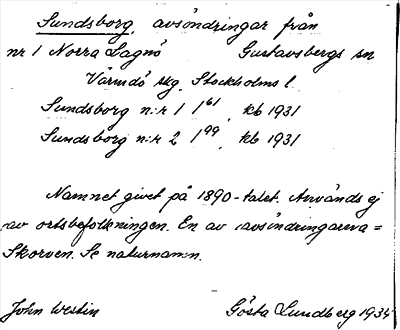 Sundsborg, avsöndringar från
nr 1 Norra Lagnö Gustavsbergs sn
Värmdö skg. Stockholms l.
Sundsborg n:r 1 1⁶¹, kb 1931
Sundsborg n:r 2 1⁹⁹, kb 1931
Namnet givet på 1890-talet. Används ej
av ortsbefolkningen. En av avsöndringarna =
Skorven. Se naturnamn.
John Westin Gösta Lundberg 1934